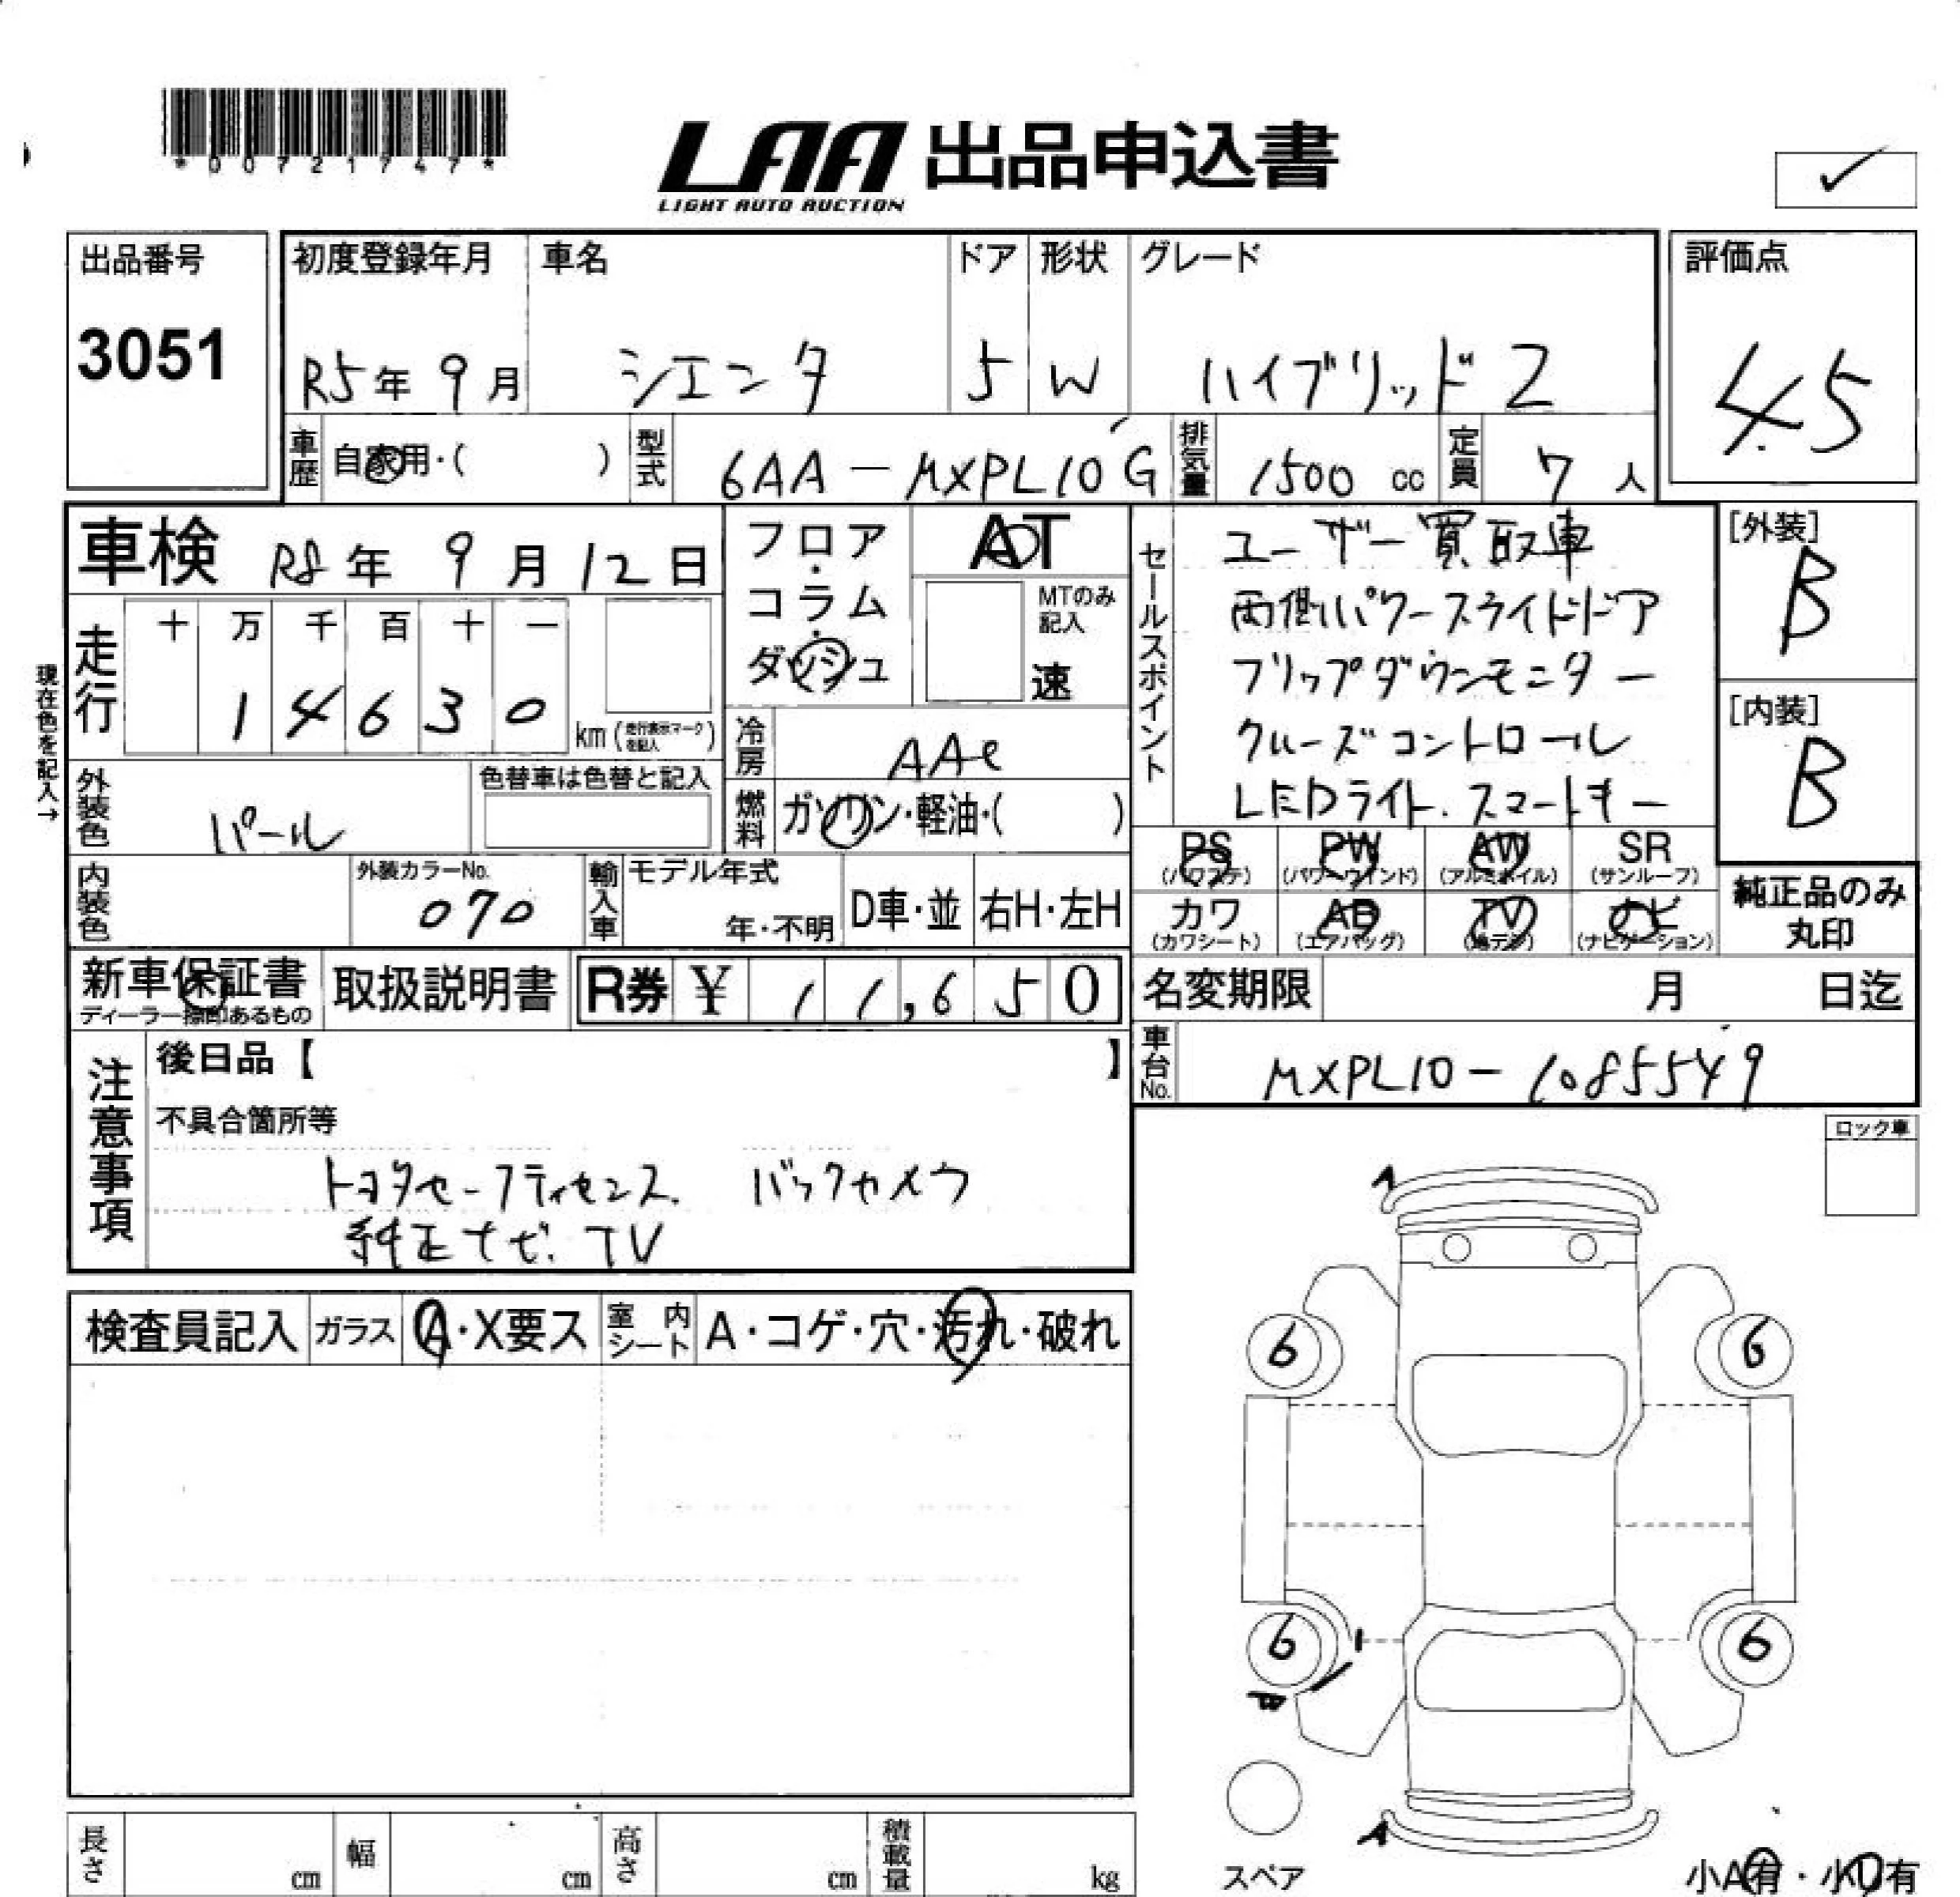 *00721747*
LAA 出品申込書
LIGHT AUTO AUCTION
✓
出品番号
3051
初度登録年月
R5年 9月
車名
シエンタ
ドア
5
形状
W
グレード
ハイブリッド Z
評価点
4.5
車歴
自家用・( )
型式
6AA-MXPL10G
排気量
1500 cc
定員
7人
車検 R8年 9月 12日
現在色を記入→
走行
十 万 千 百 十 一
1 4 6 3 0
km(走行表示マークを記入)
フロア・コラム・ダッシュ
AT
MTのみ記入
速
冷房
AAC
燃料
ガソリン・軽油・( )
外装色
パール
色替車は色替と記入
内装色
外装カラーNo.
070
輸入車
モデル年式
年・不明
D車・並
右H・左H
セールスポイント
ユーザー買取車
両側パワースライドドア
フリップダウンモニター
クルーズコントロール
LEDライト.スマートキー
[外装]
B
[内装]
B
PS
(パワステ)
PW
(パワーウインド)
AW
(アルミホイル)
SR
(サンルーフ)
カワ
(カワシート)
AB
(エアバッグ)
TV
(地デジ)
ナビ
(ナビゲーション)
純正品のみ
丸印
新車保証書
ディーラー捺印あるもの
取扱説明書
R券 ¥ 11,650
名変期限 月 日迄
車台No.
MXPL10-1085549
注意事項
後日品【 】
不具合箇所等
トヨタセーフティセンス. バックカメラ
純正ナビ.TV
ロック車
検査員記入
ガラス
A・X要ス
室内シート
A・コゲ・穴・汚れ・破れ
A
6
6
6
6
A
スペア
小A有・小U有
長さ cm
幅 cm
高さ cm
積載量 kg